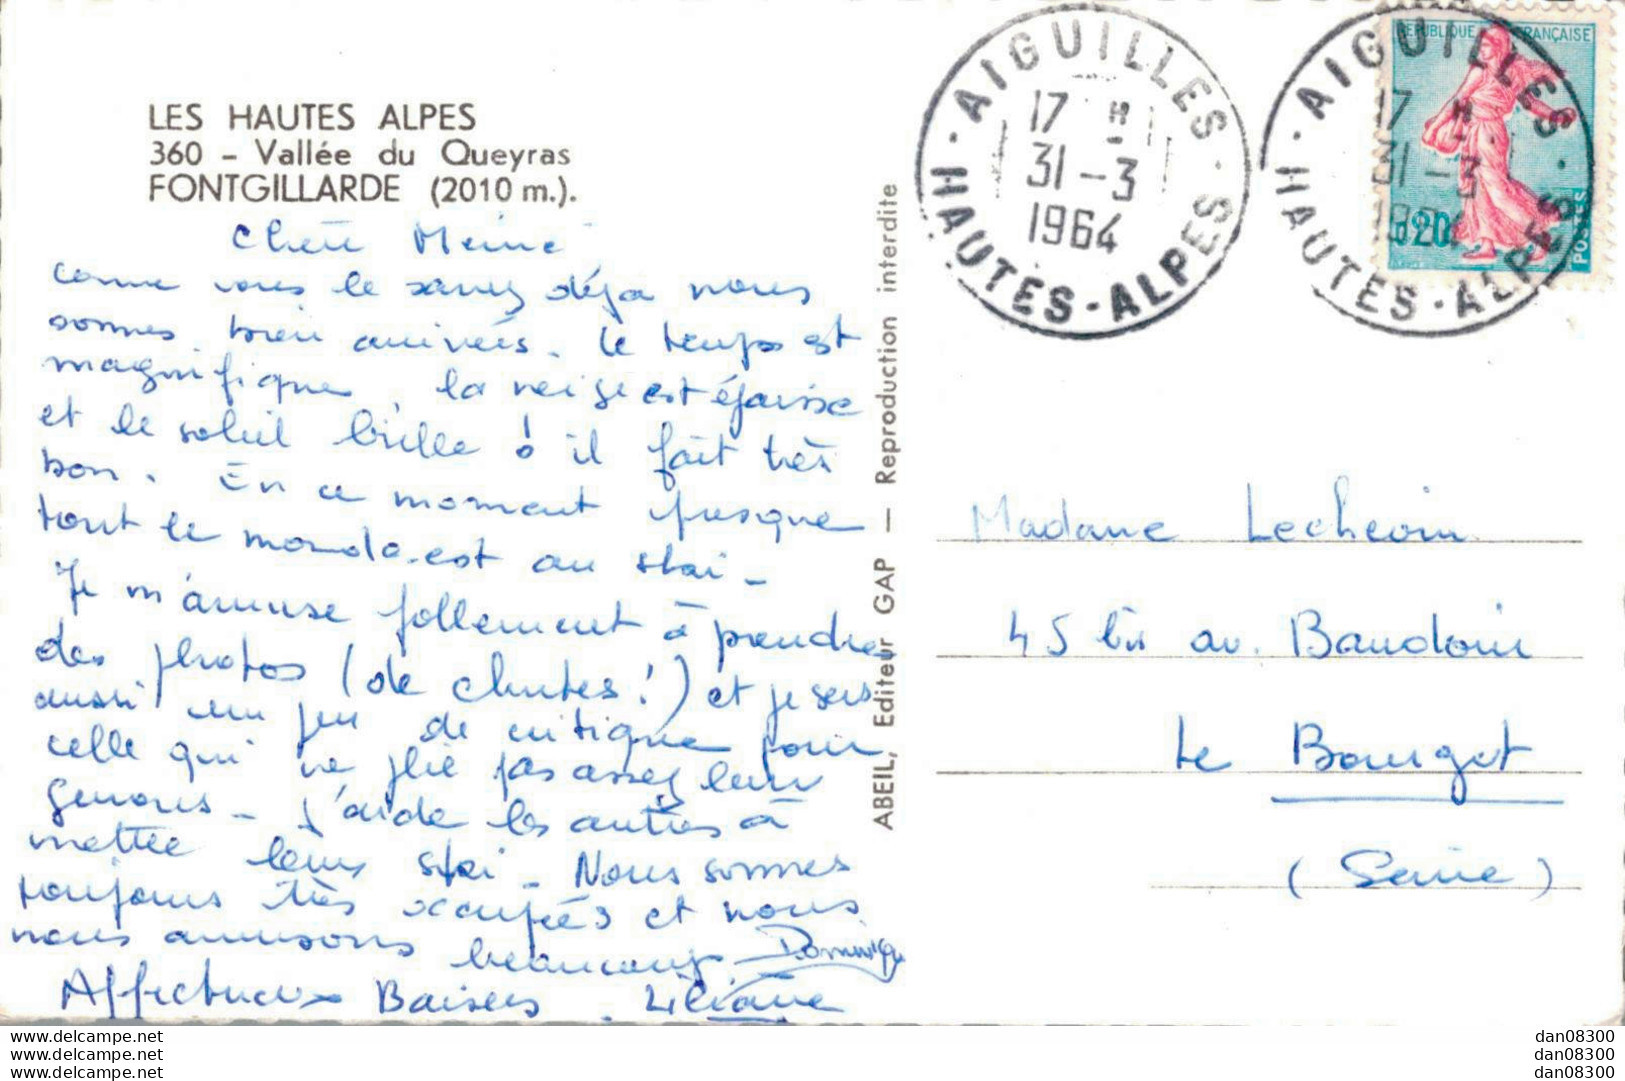 LES HAUTES ALPES
360 - Vallée du Queyras
FONTGILLARDE (2010 m.).
Chère Mémé
comme vous le savez déja nous
sommes bien arrivés. le temps est
magnifique, la neige est épaisse
et le soleil brille ! il fait très
bon. En ce moment presque
tout le monde est au skai -
Je m'amuse follement à prendre
des photos (de chutes !) et je sers
aussi un peu de critique pour
celle qui ne plie pas assez leur
genoux - J'aide les autres à
mettre leur skai - Nous sommes
toujours très occupés et nous
nous amusons beaucoup Dominique
Affectueux Baisers. Liliane
ABEIL, Editeur GAP — Reproduction interdite
AIGUILLES
17 H
31-3
1964
HAUTES-ALPES
REPUBLIQUE FRANÇAISE
0,20
POSTES
AIGUILLES
17 H
31-3
HAUTES-ALPES
Madame
45 bis av. Baudoin
le Bourget
(Seine)
www.delcampe.net
www.delcampe.net
www.delcampe.net
dan08300
dan08300
dan08300